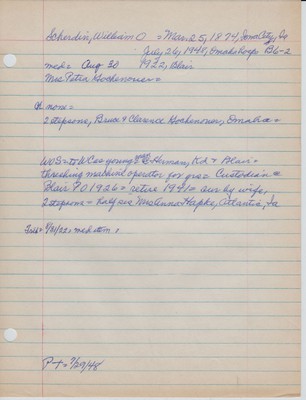 Scherdin, William O = Mar. 5, 1874, Iowa City, Ia
July, 26, 1948, Omaha Hosp. B6-2
med = Aug 30 1922, Blair
Mrs Petra Gochenour =
Ch none =
2 stepsons, Bruce & Clarence Gochenour, Omaha =
WOS = to WCo as young Herman, Kd & Blair =
threshing machine operator for yrs = Custodian @
Blair PO 1926 = retire 1941 = sur by wife,
2 stepsons = Half sis Mrs Anna Hapke, Atlantic, Ia
Trib = 8/31/22, med item,
PT = 7/29/48